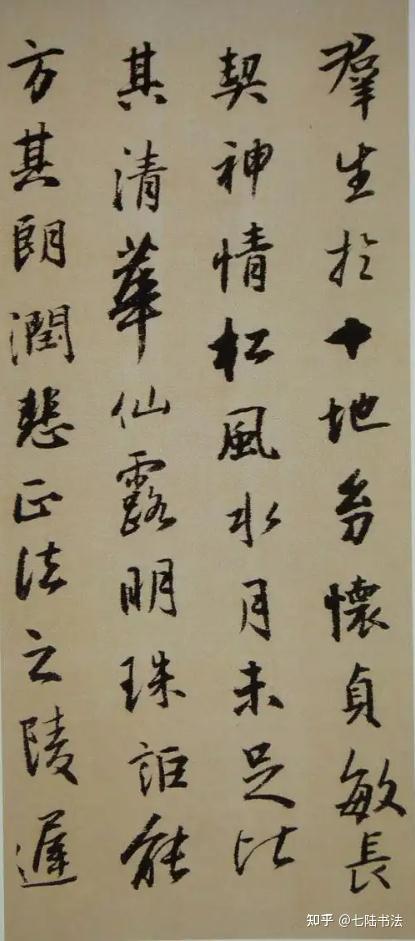 羣生於十地幼懷貞敏長
契神情松風水月未足比
其清華仙露明珠詎能
方其朗潤悲正法之陵遲
知乎 @七陆书法